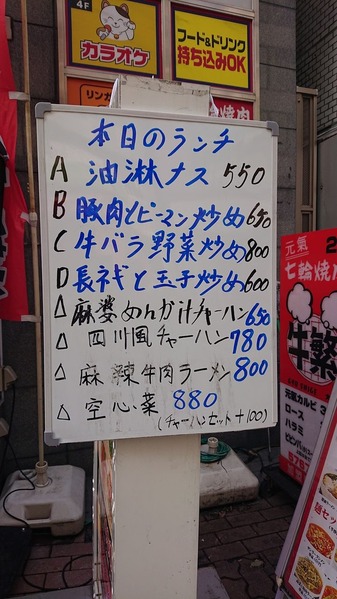 4F
カラオケ
フード&ドリンク
持ち込みOK
本日のランチ
A 油淋ナス 550
B 豚肉とピーマン炒め 650
C 牛バラ野菜炒め 800
D 長ネギと玉子炒め 600
△ 麻婆めんか汁チャーハン 650
△ 四川風チャーハン 780
△ 麻辣牛肉ラーメン 800
△ 空心菜 880
(チャーハンセット+100)
元氣
七輪焼
牛繁
元氣カルビ
ロース
ハラミ